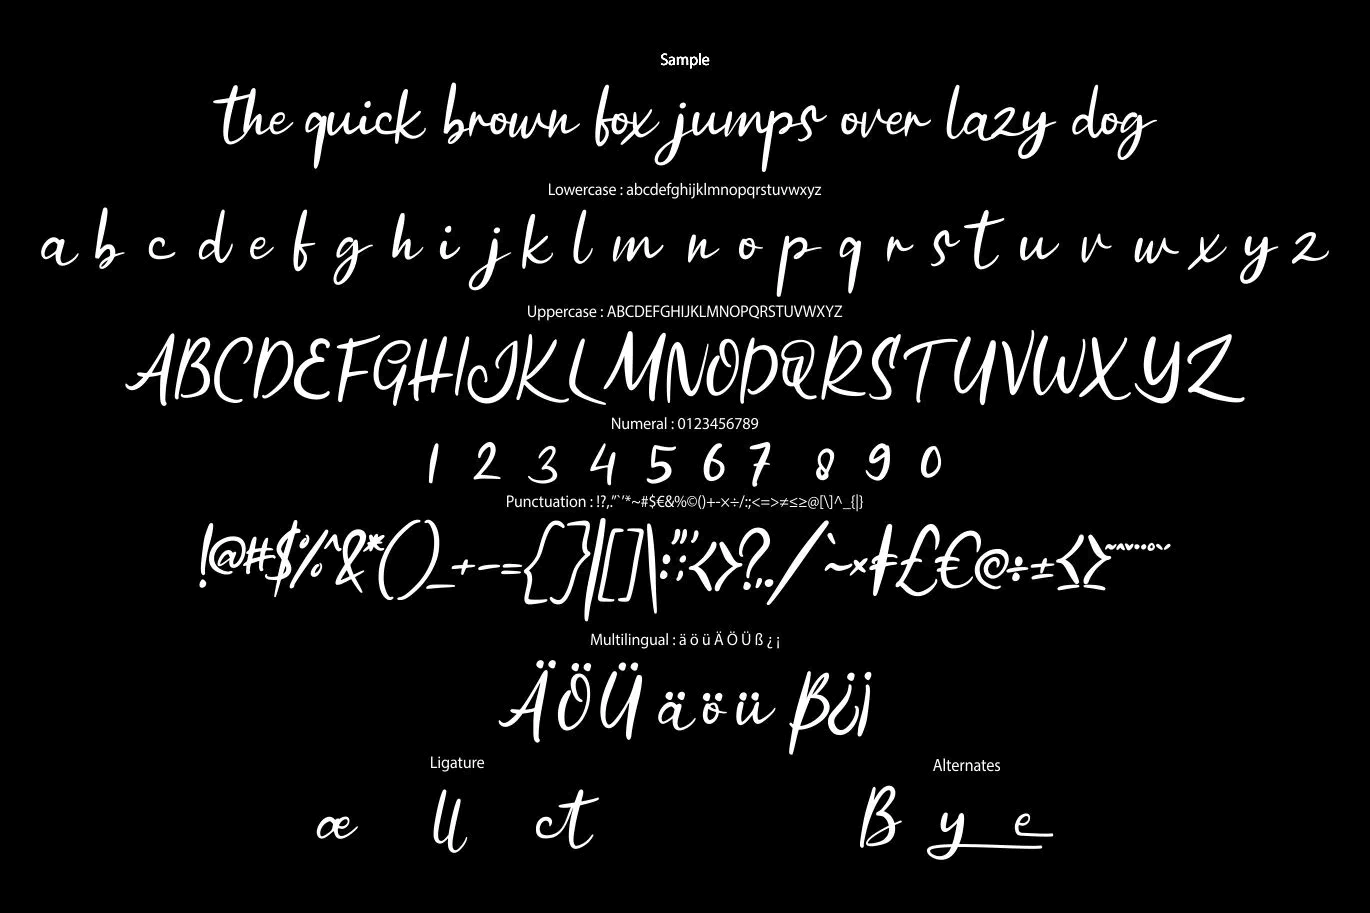 Sample
the quick brown fox jumps over lazy dog
Lowercase : abcdefghijklmnopqrstuvwxyz
a b c d e f g h i j k l m n o p q r s t u v w x y z
Uppercase : ABCDEFGHIJKLMNOPQRSTUVWXYZ
ABCDEFGHIJKLMNOPQRSTUVWXYZ
Numeral : 0123456789
1 2 3 4 5 6 7 8 9 0
Punctuation : !?,."`'*~#$€&%©()+-×÷/:;<=>≠≤≥@[\]^_{|}
!@#$%^&*()_+-={}|[]\:;"'<>?,./`~×≠£€©÷±≤≥
Multilingual : ä ö ü Ä Ö Ü ß ¿ ¡
ÄÖÜ äöü ß¿¡
Ligature Alternates
æ ll ct B y e